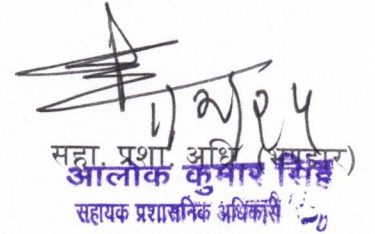 सहा. प्रशा. अधि. (भण्डार)
आलोक कुमार सिंह
सहायक प्रशासनिक अधिकारी